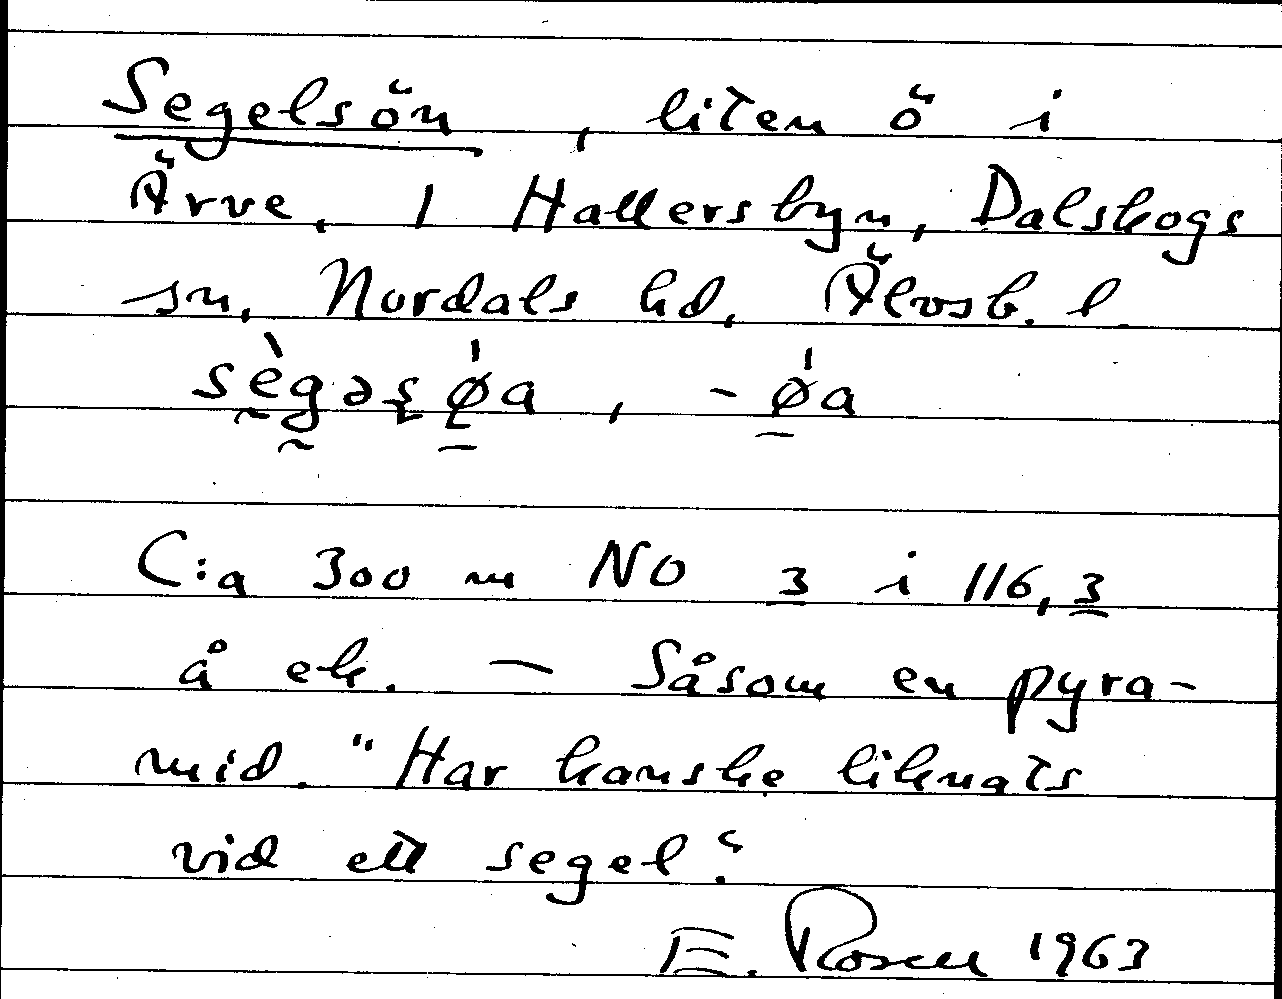 Segelsön, liten ö i
Ärve, 1 Hallersbyn, Dalskogs
sn, Nordals hd, Älvsb. l.
sègəʂøa, -øa
C:a 300 m NO 3 i 116,3
å ek. – Såsom en pyra-
mid. "Har kanske liknats
vid ett segel".
E. Rosell 1963